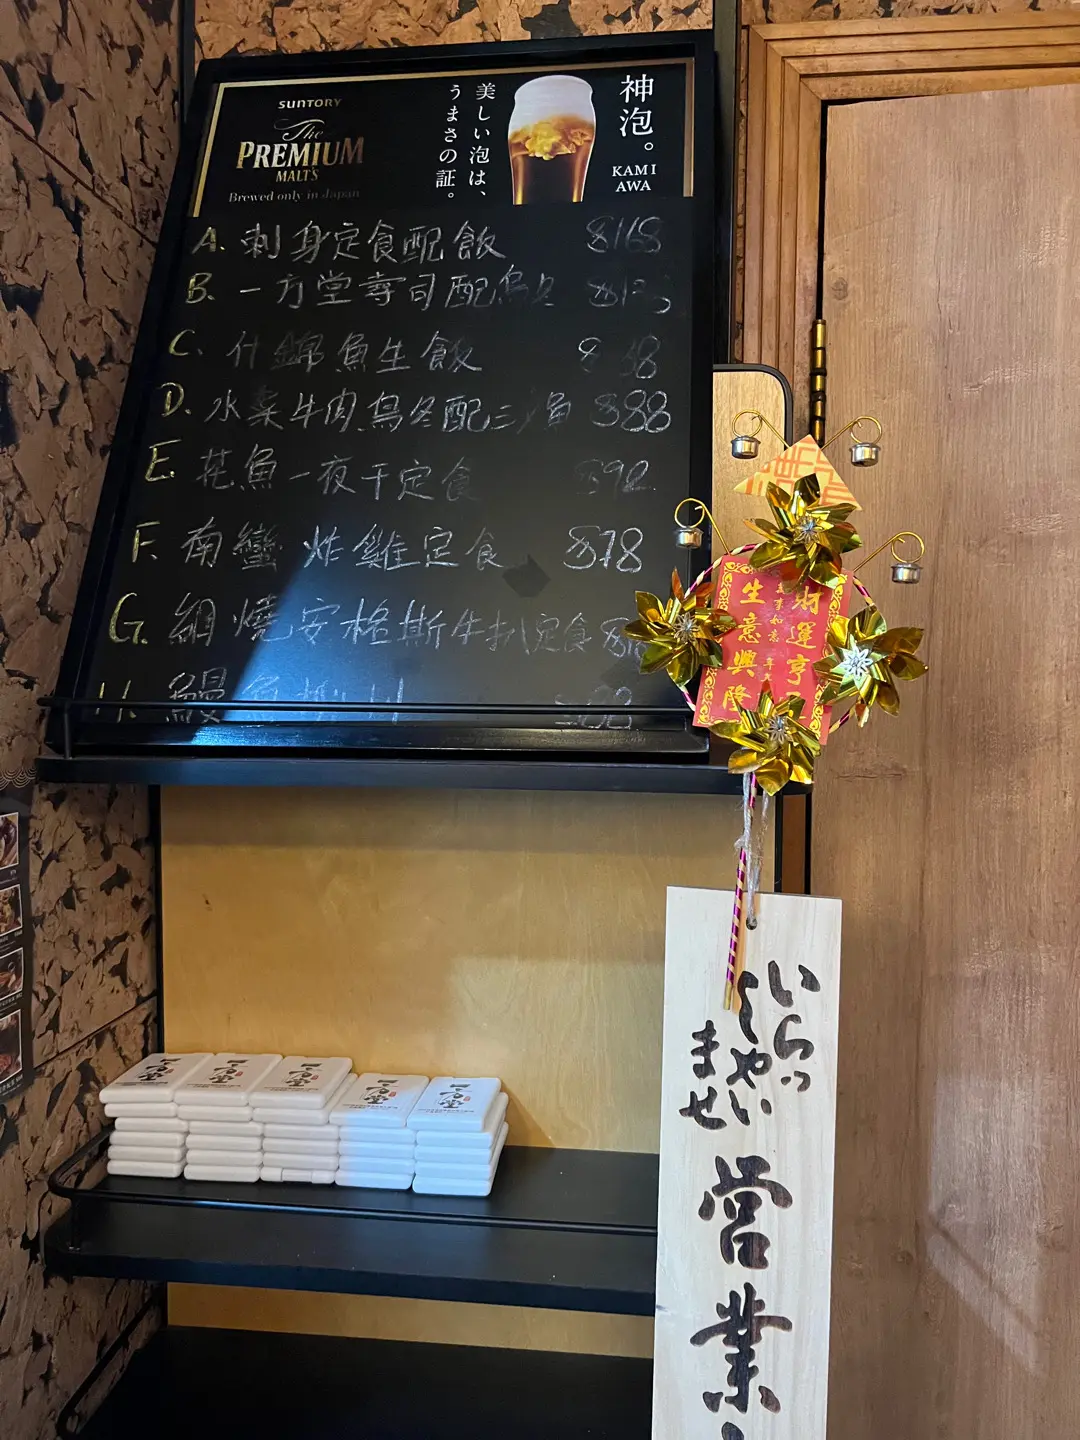 SUNTORY
The
PREMIUM
MALT'S
Brewed only in Japan
美しい泡は、
うまさの証。
神泡。
KAMI
AWA
A. 刺身定食配飯 $168
B. 一方堂壽司配烏冬
C. 什錦魚生飯
D. 水菜牛肉烏冬配三 $88
E. 花魚一夜干定食 $92
F. 南蠻炸雞定食 $78
G. 網燒安格斯牛扒定食
H. 鰻魚
財運亨
萬事如意
生意興隆
いらっ
しゃい
ませ
営業
一方堂
一方堂
一方堂
一方堂
一方堂